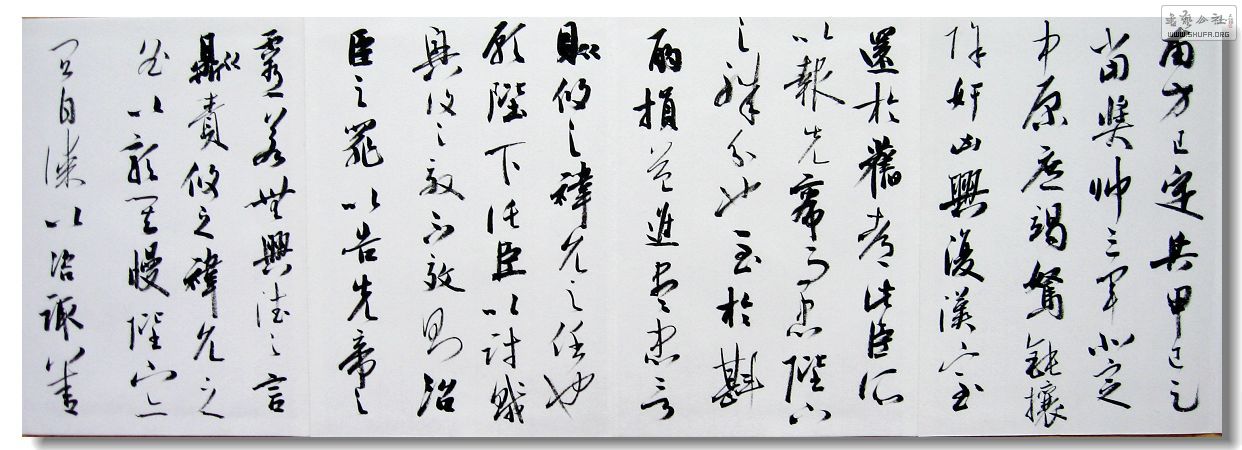 南方已定兵甲已足
當獎帥三軍北定
中原庶竭駑鈍攘
除奸凶興復漢室
還於舊都此臣所
以報先帝而忠陛下
之職分也至於斟
酌損益進盡忠言
則攸之禕允之任也
願陛下託臣以討賊
興復之效不效則治
臣之罪以告先帝之
靈若無興德之言
則責攸之禕允之
咎以彰其慢陛下亦
宜自課以咨諏善
書藝公社
WWW.SHUFA.ORG